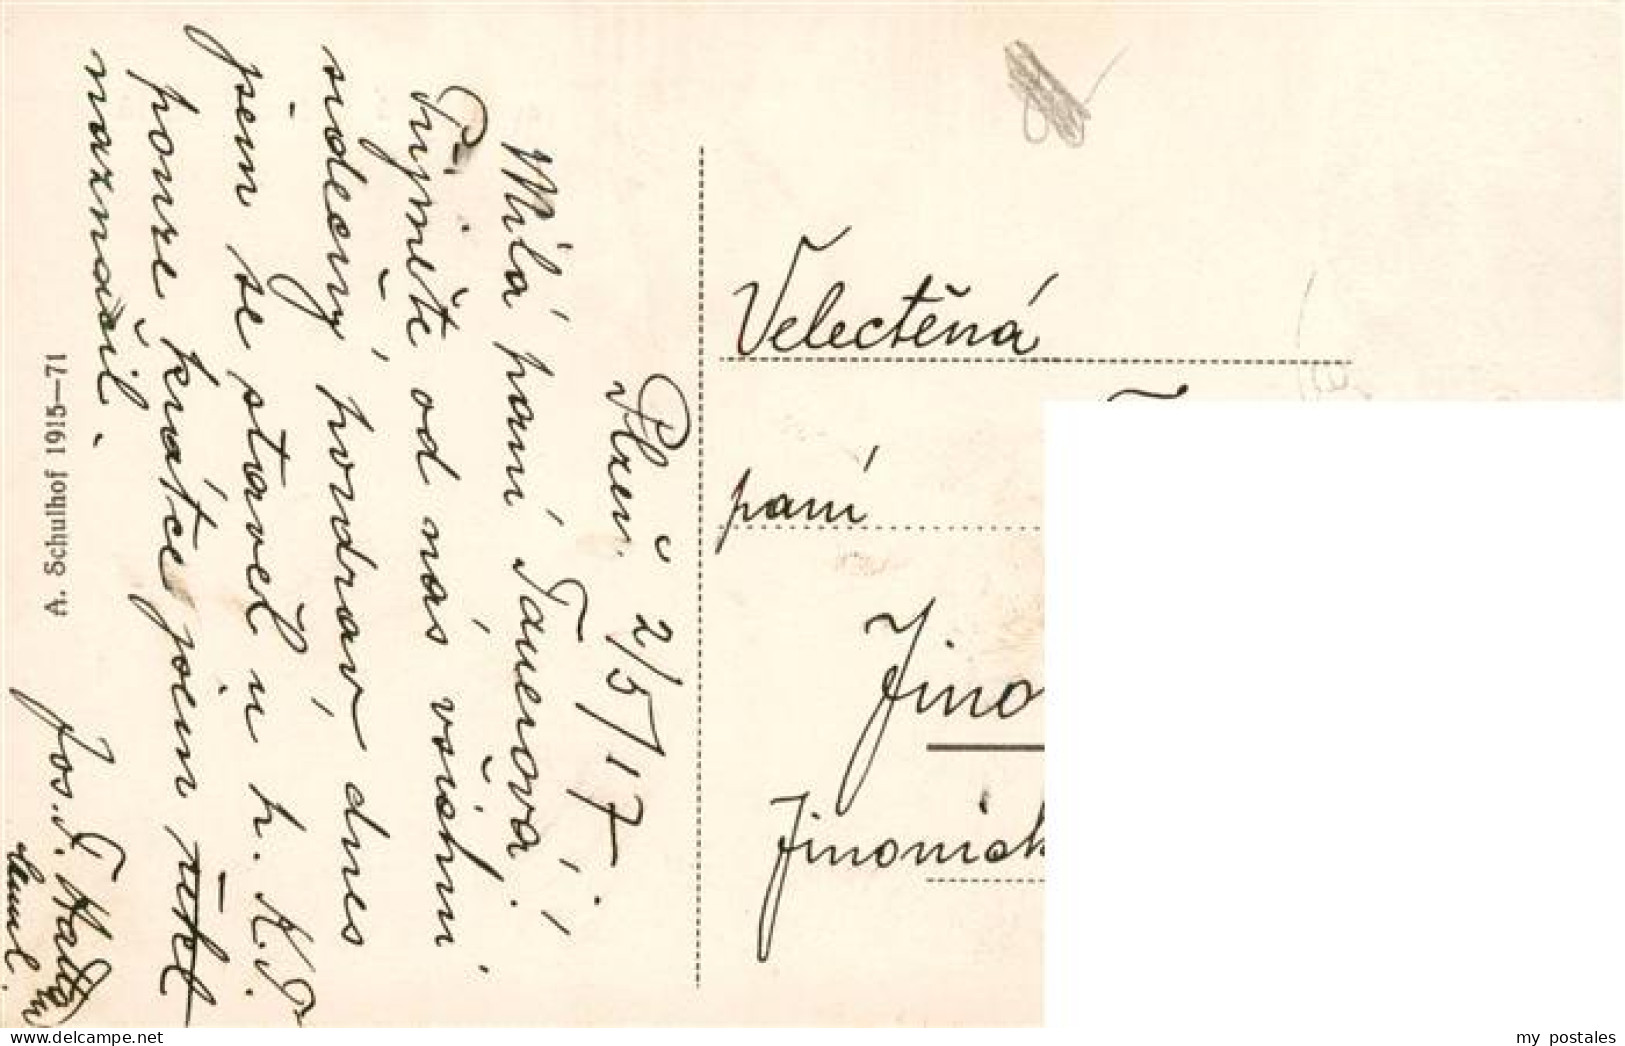 Plzeň 2/5/17.
Milá paní Tauerová!
Přijměte od nás všichni
srdečný pozdrav, dnes
jsem se stavěl u p. K. P.
pouze krátce jsem řekl
naznačil.
Jos. F.
A. Schulhof 1915—71
Velectěná
paní
Jino
Jinonick
my postales